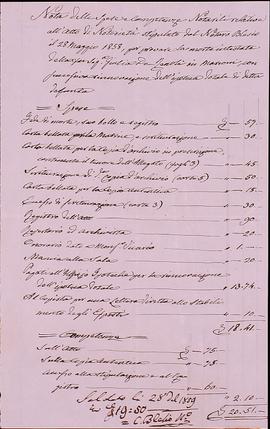 Nota delle Spese e Competenze Notarili relative
all'Atto di Notorietà stipulato dal Notaro Blasio
il 28 Maggio 1858, per provare la morte intestata
della fu Sig.ª Giulia De in Marconi, con
successiva rinnovazione dell'ipoteca Totale di detta
defunta
Spese
Fede di morte, suo bollo e registro £ — 57.
Carta bollata per la Matrice, e scritturazione " — 30.
Carta bollata per la Copia d'archivio
contenente il tenore dell'Allegato (fogli 3) " — 45
Scritturazione di d.ª Copia d'archivio (carte 5) " — 50
Carta bollata per la Copia Autentica " — 15.
Emessa di scritturazione (carte 3) " — 30
Registro dell'Atto " — 90
Repertorio ed archivista " — 20
Onorario dato a Mons.r Vicario " 1. —
Mancia alla Sala " — 20
Pagate all'Uffizio Ipoteche per la rinnovazione
dell'ipoteca Totale " 13.74.
Al Copista per una Lettera diretta allo Stabili-
mento degli Esposti " — 10
£ 18.41.
Competenze
Sull'Atto £ — 75
Sulla Copia Autentica " — 75
Accesso alla stipulazione e al
gistro " — 60 —
" 2.10 —
£ 20.51.
Saldato li 28 1859
in £ 19=50
C. Blasio N.º